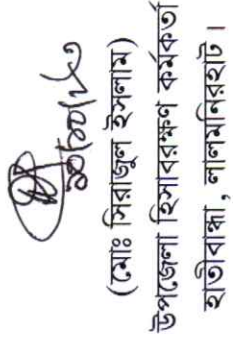 (মোঃ সিরাজুল ইসলাম)
উপজেলা হিসাবরক্ষণ কর্মকর্তা
হাতীবান্ধা, লালমনিরহাট।